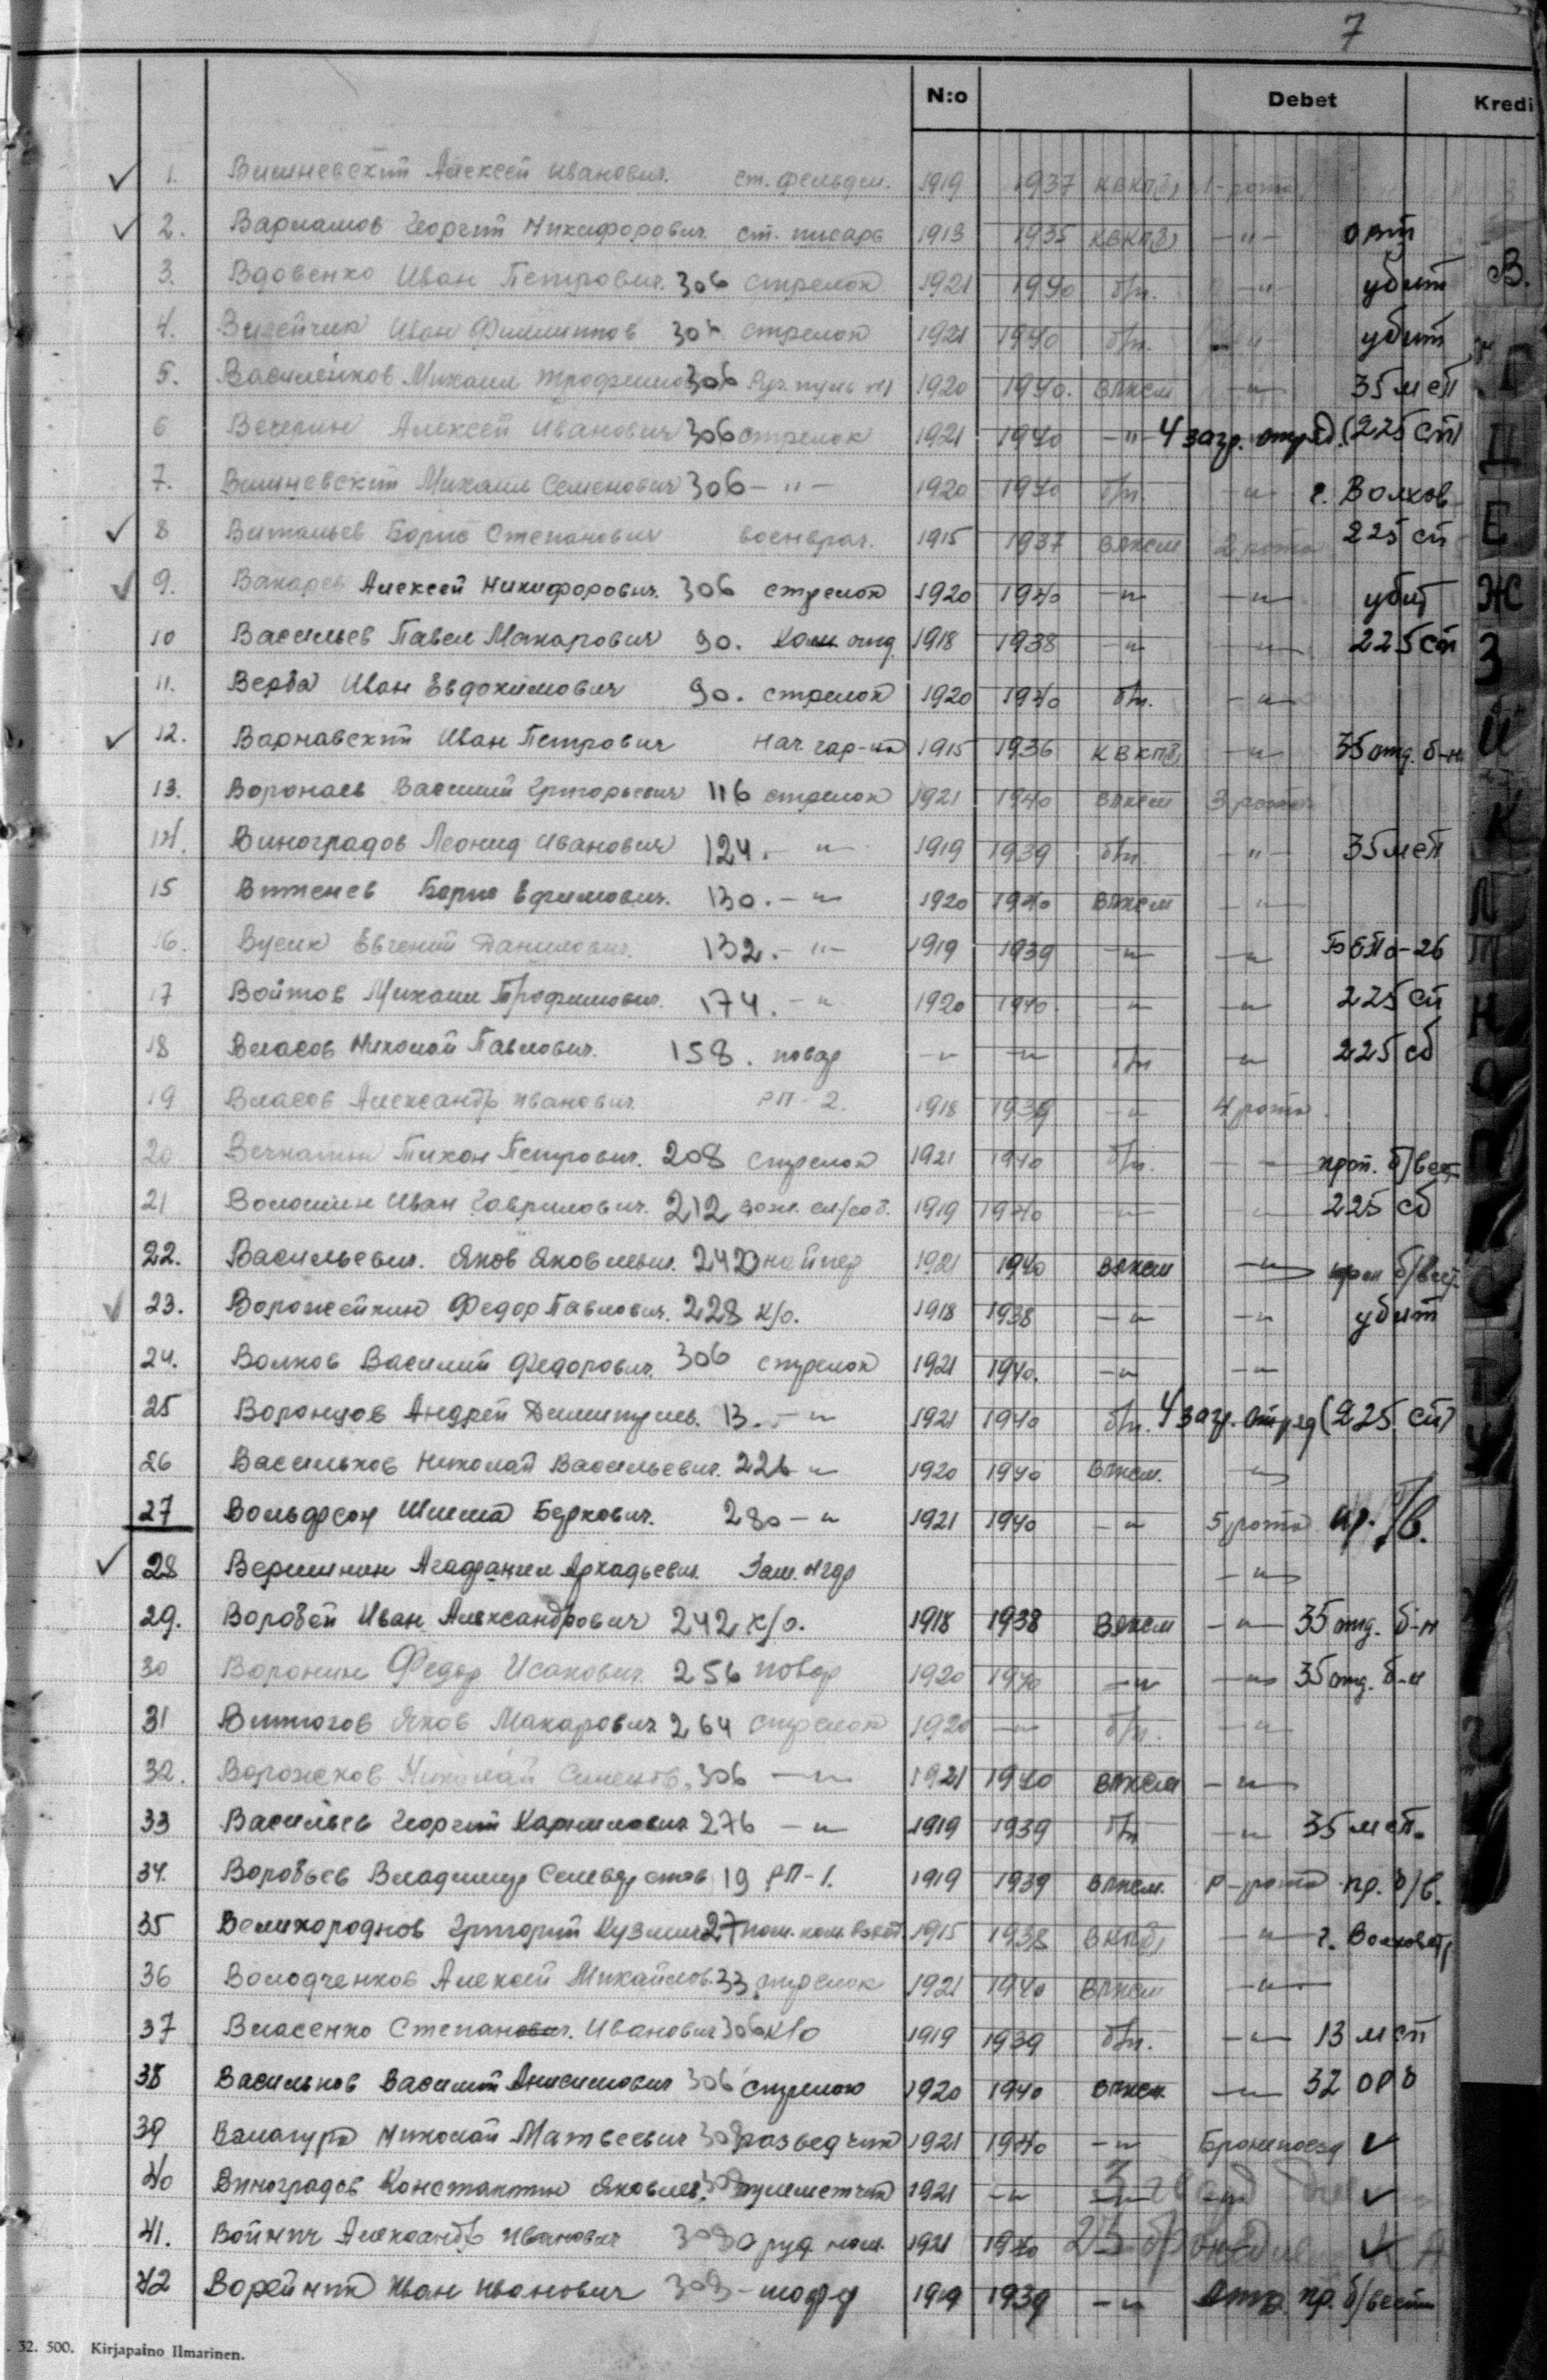 7
N:o Debet Kredi
1. Вишневский Алексей Иванович. ст. фельдш. 1919 1937 КВКП(б) 1-рота
2. Варламов Георгий Никифорович ст. писарь 1913 1935 КВКП(б) -"-
3. Вдовенко Иван Петрович. 306 стрелок 1921 1940 б/п. -"- убит В.
4. Иван Филиппов стрелок 1921 1940 б/п. -"- убит
5. Василенков Михаил Трофимов 306 Руч. пул 1920 1940. ВЛКСМ -"- 35 мсп Г
6 Вечерин Алексей Иванович 306 стрелок 1921 1940 -"- 4 загр. отряд. (225 сп) Д
7. Вишневский Михаил Семенович 306 -"- 1920 1940 б/п. -"- г. Волхов
8 Витальев Борис Степанович военврач. 1915 1937 ВЛКСМ 2 рота 225 сп Е
9. Вакарев Алексей Никифорович. 306 стрелок 1920 1940 -"- -"- убит Ж
10 Васильев Павел Макарович 90. Ком отд. 1918 1938 -"- -"- 225 сп З
11. Верба Иван Евдокимович 90. стрелок 1920 1940 б/п. -"-
12. Варнавский Иван Петрович Нач. гар-на 1915 1936 КВКП(б) -"- 35 отд. б-н И
13. Воронаев Василий Григорьевич 116 стрелок 1921 1940 ВЛКСМ 3 рота
14. Виноградов Леонид Иванович 124. -"- 1919 1939 б/п. -"- 35 мсп К
15 Борис Ефимович. 130. -"- 1920 1940 ВЛКСМ -"- Л
16. Вусик Евгений Данилович. 132. -"- 1919 1939 -"- -"- М
17 Войтов Михаил Трофимович. 174. -"- 1920 1940. -"- -"- 225 сп Н
18 Власов Николай Павлович. 158. повар -"- -"- б/п -"- 225 сб О
19 Власов Александр Иванович. РП-2. 1918 1939 -"- 4 рота.
20 Тихон Петрович. 208 стрелок 1921 1940 б/п. -"- проп. б/вест П
21 Волошин Иван Гаврилович. 212 1919 1940 -"- -"- 225 сб
22. Васильевич. Яков Яковлевич. 242 снайпер 1921 1940 ВЛКСМ -"- проп б/вест. С
23. Ворожейкин Федор Павлович. 228 к/о. 1918 1938 -"- -"- убит
24. Волков Василий Федорович. 306 стрелок 1921 1940. -"- -"- Т
25 Воронцов Андрей Дмитриев. 13. -"- 1921 1940 б/п. 4 загр. отряд (225 сп) У
26 Васильков Николай Васильевич. 226 -"- 1920 1940 ВЛКСМ. -"-
27 Вольфсон Шлема Беркович. 280 -"- 1921 1940 -"- 5 рота пр. б/в.
28 Вершинин Агафангел Аркадьевич. Зам. -"-
29. Воробей Иван Александрович 242 к/о. 1918 1938 ВЛКСМ -"- 35 отд. б-н
30 Воронин Федор Исакович. 256 повар 1920 1940 -"- -"- 35 отд. б-н
31 Витюгов Яков Макарович 264 стрелок 1920 -"- б/п. -"-
32. Ворожеков Николай 306 -"- 1921 1940 ВЛКСМ -"-
33 Васильев Георгий Карпилович 276 -"- 1919 1939 б/п -"- 35 мсп.
34. Воробьев Владимир Селиверстов 19 РП-1. 1919 1939 ВЛКСМ. р-рота пр. б/в.
35 Великороднов Григорий Кузмич 27 пом. ком. взвод 1915 1938 ВКП(б) -"-
36 Володченков Алексей Михайлов. 33 стрелок 1921 1940 ВЛКСМ -"-
37 Власенко Степан Иванович 306 к/о 1919 1939 б/п. -"- 13 мсп
38 Васильков Василий Анисимович 306 стрелок 1920 1940 ВЛКСМ -"- 32 орб
39 Вамагура Николай Матвеевич 308 разведчик 1921 1940 -"- Бронепоезд
40 Виноградов Константин Яковлев. 308 пулеметчик 1921 -"- -"- -"-
41. Войнич Александр Иванович 308 оруд. 1921 1940
42 Ворейчик Иван Иванович 308 - шофер 1919 1939 -"- пр. б/вести
32. 500. Kirjapaino Ilmarinen.